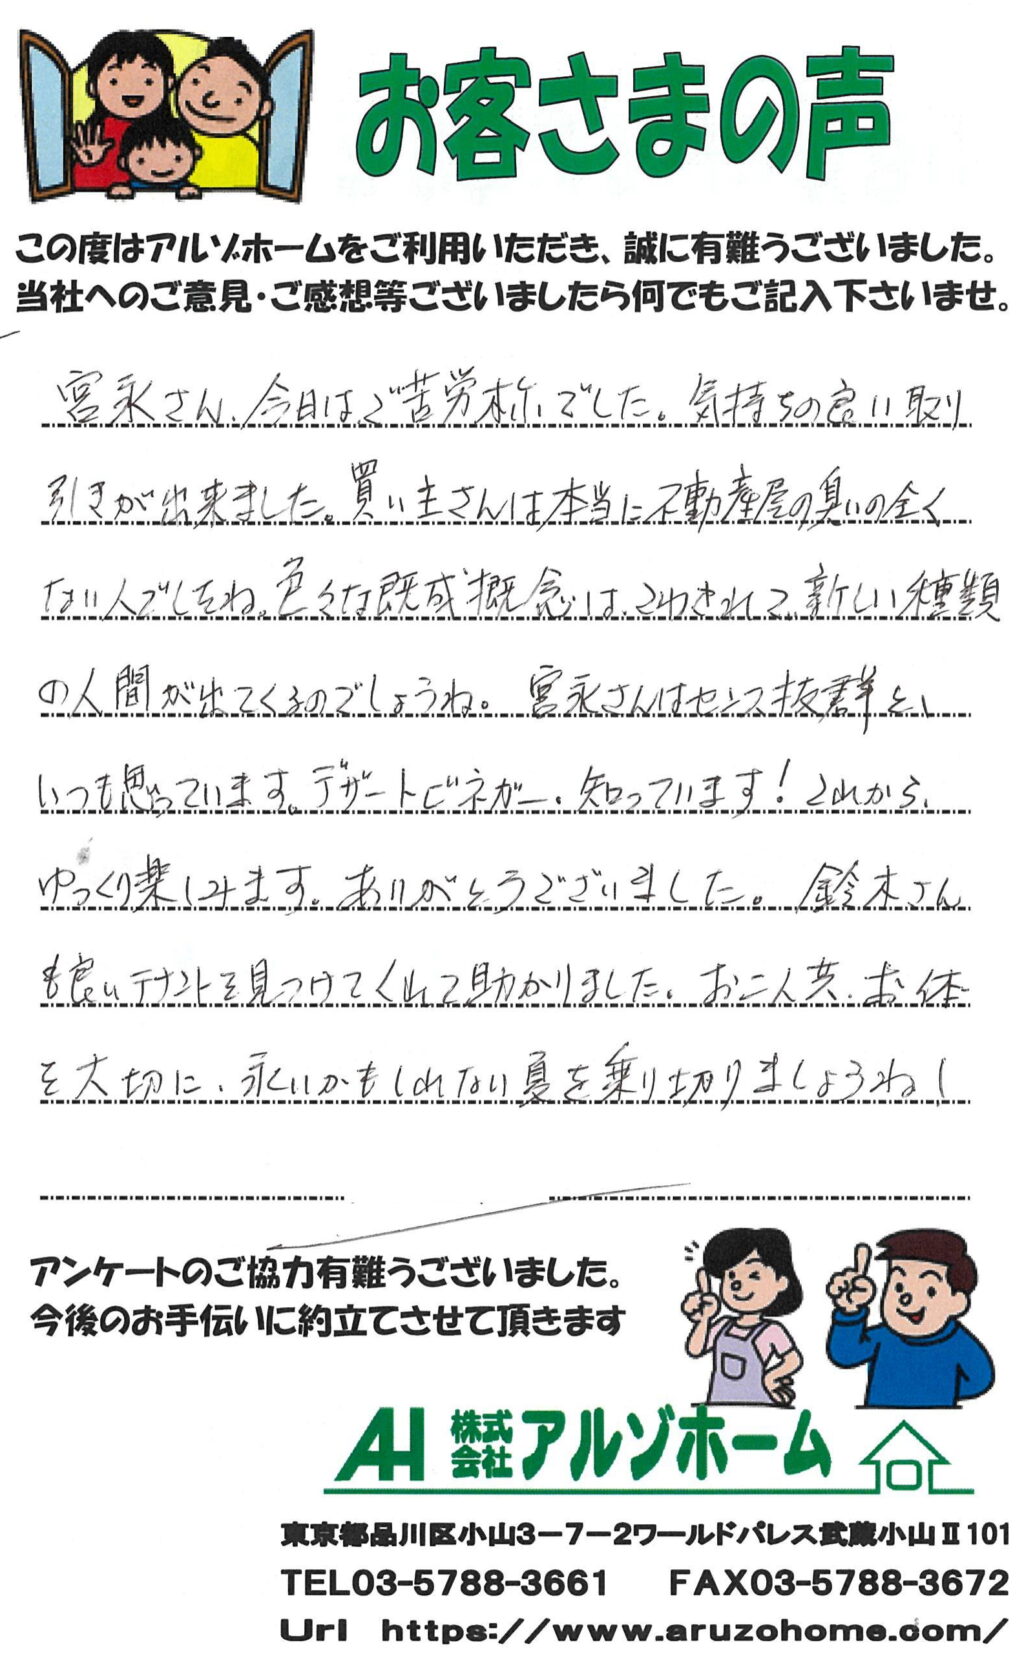 お客さまの声
この度はアルゾホームをご利用いただき、誠に有難うございました。
当社へのご意見・ご感想等ございましたら何でもご記入下さいませ。
宮永さん、今日はご苦労様でした。気持ちの良い取り
引きが出来ました。買い主さんは本当に不動産屋の臭いの全く
ない人でしたね。色々な既成概念は、こわされて、新しい種類
の人間が出てくるのでしょうね。宮永さんはセンス抜群と、
いつも思っています。デザートビネガー、知っています！これから、
ゆっくり楽しみます。ありがとうございました。鈴木さん
も良いテナントを見つけてくれて助かりました。お二人共、お体
を大切に、永いかもしれない夏を乗り切りましょうね！
アンケートのご協力有難うございました。
今後のお手伝いに約立てさせて頂きます
AH 株式会社 アルゾホーム
東京都品川区小山3-7-2ワールドパレス武蔵小山Ⅱ101
TEL03-5788-3661 FAX03-5788-3672
Url https://www.aruzohome.com/